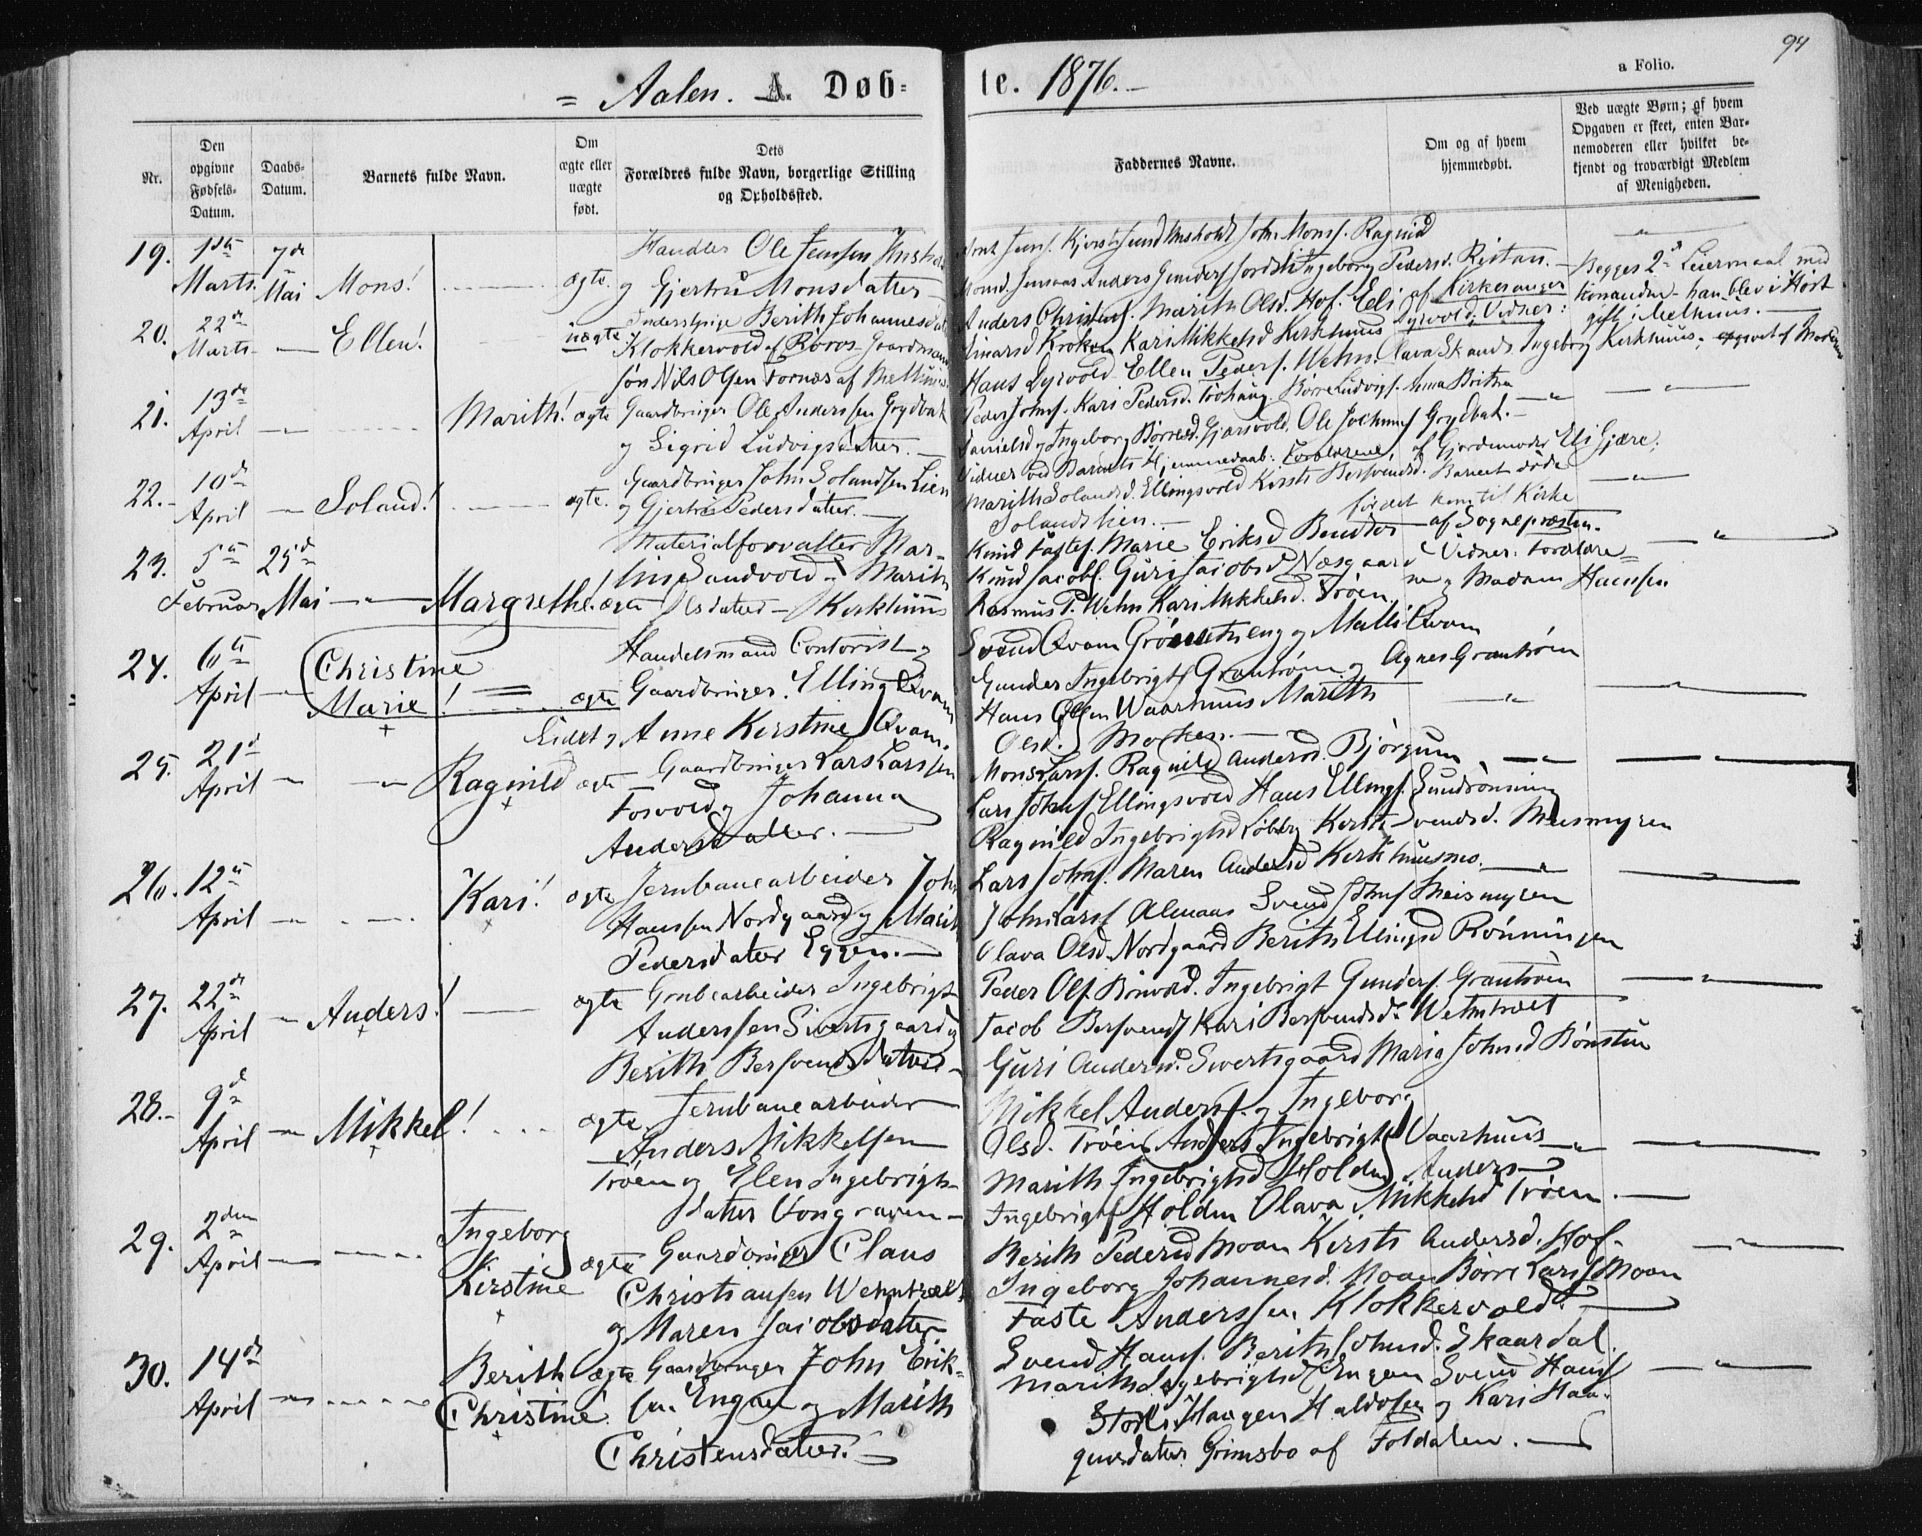 94
= Aalen. A. Døb=
te. 1876.
a Folio.
Nr.
Den opgivne Fødsels-Datum.
Daabs-Datum.
Barnets fulde Navn.
Om ægte eller uægte født.
Dets Forældres fulde Navn, borgerlige Stilling og Opholdssted.
Faddernes Navne.
Om og af hvem hjemmedøbt.
Ved uægte Børn; af hvem Opgaven er skeet, enten Barnemoderen eller hvilket bekjendt og troværdigt Medlem af Menigheden.
19. 1ste Marts 7de Mai Mons! ægte
Handler Ole Jenssen
og Gjertru Monsdatter
John Monss. Ragnild
Anders Gunders Ingeborg Pedersd. Reitan.
20. 22de Marts Ellen! uægte
Berith Johannesdat
Klokkervold af Røros Gaardmand
søn Nils Olsen Tornæs af Melhuus
Anders Christens. Marith Olsd. Hof. Eli af Kirkesanger
Kroken Kari Mikkelsd Kirkhuus Dyrvold; Vidner:
Haus Dyrvold. Ellen Peders. Wehn. Olava Skands Ingeborg Kirkhuus;
Begges 2d Leiermaal med
Konanden han blev i Høst
gift i Melhuus.
opgivet af Moderen
21. 13de April Marith! ægte
Gaardbruger Ole Anderssen Grydbak
og Sigrid Ludvigsdatter
Peder Johns. Kari Pedersd. Trøhaug. Børre Ludvigs. Anna Britha
Danielsd og Ingeborg Børresd. Gjarsvold. Ole Jochums Grydbak.
Vidner ved Barnets Hjemmedaab: Forældrene, af Gjordemoder Eli Gjære.
22. 10de April Soland! ægte
Gaardbruger John Solandsen Lien
og Gjertru Pedersdatter
Marith Solandsd. Ellingsvold Kirsti Bersvendsd. Barnet døde
Solandslien.
førdet kom til Kirke
23. 5te Februar 25de Mai Margrethe! ægte
Materialforvalter Mar-
Sandvold og Marith
Olsdatter Kirkhuus
Knud Fastes. Marie Eriksd Bendtos
Knud Jacobs. Guri Jacobsd Næsgaard
Rasmus P. Wehn Kari Mikkelsd. Trøen
af Sognepræsten.
Vidner: Forældre=
ne og Madam Hansen
24. 6te April Christine
Marie! ægte
Handelsmand Contorist og
Gaardbruger Elling Qvam
Eidet og Anne Kirstine Qvam.
Svend Qvam Grønetseng og Malli Qvam
Gunder Ingebrigts Grantrøen og Agnes Grantrøen
Hans Olsen Waarhuus Marith
Olsd. Mo
25. 21de April Ragnild ægte
Gaardbruger Lars Larssen
Fosvold og Johanna
Andersdatter.
Mons Larss. Ragnild Andersd. Bjørgum
Lars Johns Ellingsvold Hans Ellings. Sundrønning
Ragnild Ingebrigtsd Kirsti Svendsd. Meismyren
26. 12te April Kari! ægte
Jernbanearbeider John
Hanssen Nordgaard og Marit
Pedersdatter Eggen.
Lars Johns. Maren Andersd Kirkhuusmo.
John Larss Almaas Svend Johns Meismyren
Olava Olsd. Nordgaard Berith Ellingsd Rønningen
27. 22de April Anders! ægte
Grubearbeider Ingebrigt
Anderssen Sivertsgaard og
Berith Bersvendsdatter
Peder Ols. Ingebrigt Gunders. Grantrøen
Jacob Bersvends Kari Bersvendsd. Wehntræet
Guri Andersd. Sivertsgaard Maria Johnsd
28. 9de April Mikkel! ægte
Jernbanearbeider
Anders Mikkelsen
Trøen og Elen Ingebrigts-
datter Vongraven
Mikkel Anderss. og Ingeborg
Olsd. Trøen Anders Ingebrigts Vaarhuus
Marith Ingebrigtsd Holden Anders
Ingebrigts Holden Olava Mikkelsd Trøen.
29. 2den April Ingeborg
Kirstine ægte
Gaardbruger Claus
Christiansen Wehntræet
og Maren Jacobsdatter
Berith Pedersd Moan Kirsti Andersd. Hof.
Ingeborg Johannesd. Moan Børre Larss Moan
Faste Anderssen Klokkervold.
30. 14de April Berith
Christine ægte
Gaardbruger John Erik-
sen Engan og Marith
Christensdatter.
Svend Hans. Berith Johnsd. Skaardal.
Marith Ingebrigtsd Engan Svend Hans
Haagen Haldosen og Kari Haa-
gensdatter Grimsbo af Foldalen.